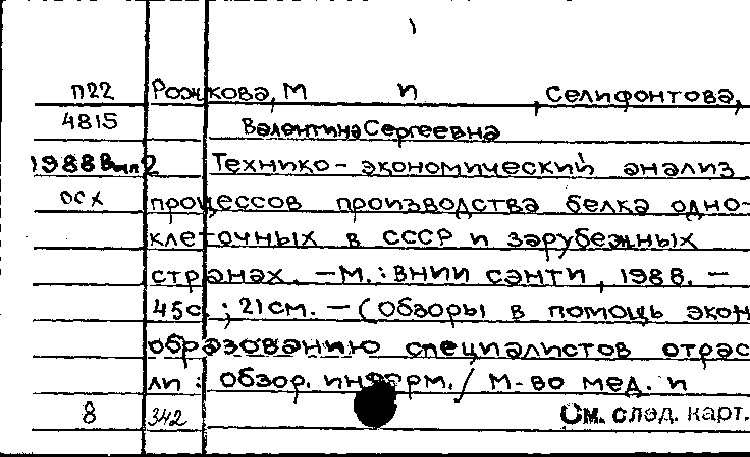 П22 Рожкова, М И , Селифонтова,
4815 Валентина Сергеевна
1988 Вып 2 Технико-экономический анализ
осх процессов производства белка одно-
клеточных в СССР и зарубежных
странах. – М. : ВНИИСЭНТИ, 1988. –
45с. ; 21см. – (Обзоры в помощь экон
образованию специалистов отрас
ли : обзор. информ. / М-во мед. и
8 342 См. след. карт.